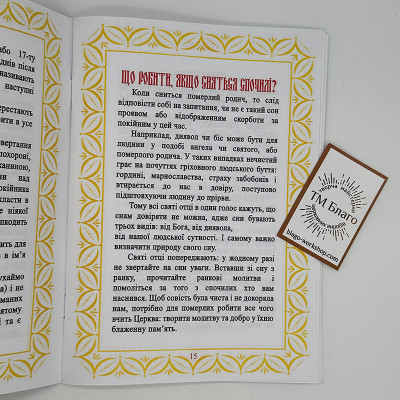 або 17-ту
днів після
називають
наступні
рестають
ойти в усе
вертання
похороні,
канною,
ни після
окійника
ється в
е ніякої
шкодить
ить для
в ім'я
ухаймо
а) і не
маних
вятому
і та є
ЩО РОБИТИ, ЯКЩО СНЯТЬСЯ СПОЧИЛІ?
Коли сниться померлий родич, то слід
відповісти собі на запитання, чи не є такий сон
проявом або відображенням скорботи за
покійним у цей час.
Наприклад, диявол чи біс може бути для
людини у подобі ангела чи святого, або
померлого родича. У таких випадках нечистий
грає на почуттях гріховного людського буття:
гордині, марнославства, страху забобонів і
втирається до нас в довіру, поступово
підштовхуючи людину до прірви.
Тому всі святі отці в один голос кажуть, що
снам довіряти не можна, адже сни бувають
трьох видів: від Бога, від диявола,
від нашої людської сутності. І самому важко
визначити природу свого сну.
Святі отці попереджають: у жодному разі
не звертайте на сни уваги. Вставши зі сну з
ранку, прочитайте ранкові молитви і
помоліться за того з спочилих хто вам
наснився. Щоб совість була чиста і не докоряла
нам, потрібно для померлих робити все чого
вчить Церква: творити молитву та добро у їхню
блаженну пам'ять.
15
ТМ Благо
blago-workshop.com